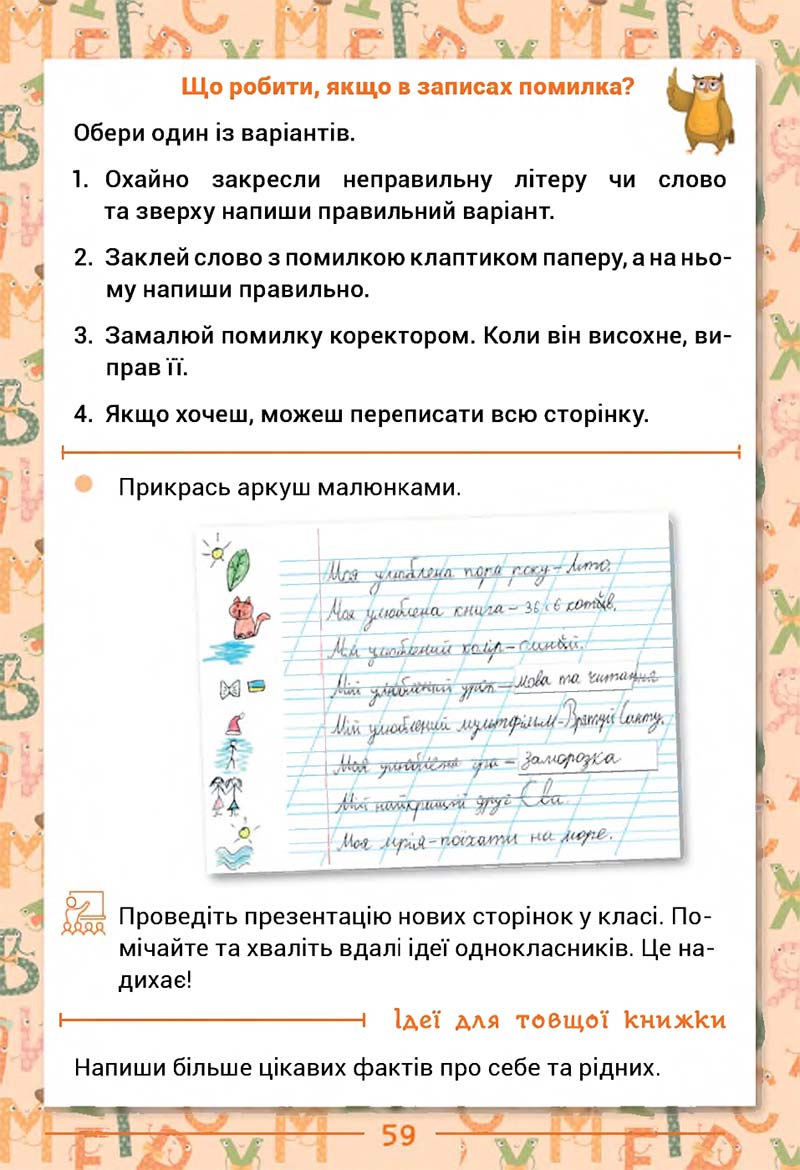 Що робити, якщо в записах помилка?
Обери один із варіантів.
1. Охайно закресли неправильну літеру чи слово
та зверху напиши правильний варіант.
2. Заклей слово з помилкою клаптиком паперу, а на ньо-
му напиши правильно.
3. Замалюй помилку коректором. Коли він висохне, ви-
прав її.
4. Якщо хочеш, можеш переписати всю сторінку.
Прикрась аркуш малюнками.
Моя улюблена пора року – літо.
Моя улюблена книга – 36 і 6 котів.
Мій улюблений колір – синій.
Мій улюблений урік – мова та читання
Мій улюблений мультфільм – Врятуй Санту.
Моя улюблена гра – заморозка
Мій найкращий друг Єва.
Моя мрія – поїхати на море.
Проведіть презентацію нових сторінок у класі. По-
мічайте та хваліть вдалі ідеї однокласників. Це на-
дихає!
Ідеї для товщої книжки
Напиши більше цікавих фактів про себе та рідних.
59